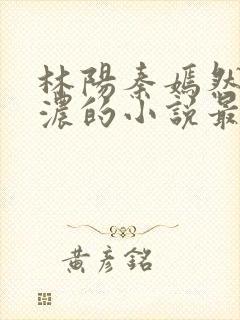 林陽秦嫣然
濃的小説最
黃彥銘